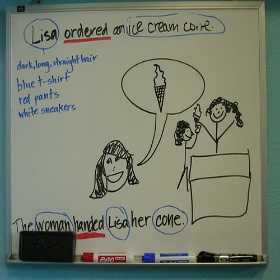 Lisa ordered an ice cream cone.
dark, long, straight hair
blue t-shirt
red pants
white sneakers
The woman handed Lisa her cone.